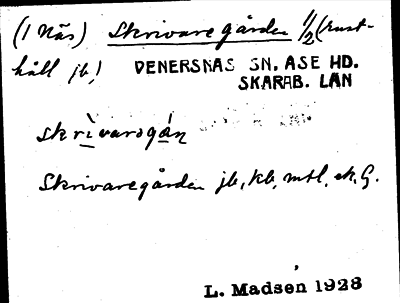 (1 Näs) Skrivaregården 1/2 (rust-
håll jb)
VENERSNÄS SN. ÅSE HD.
SKARAB. LÄN
skrìvarəgán
Skrivaregården jb, kb, mtl, ek. G.
L. Madsen 1928